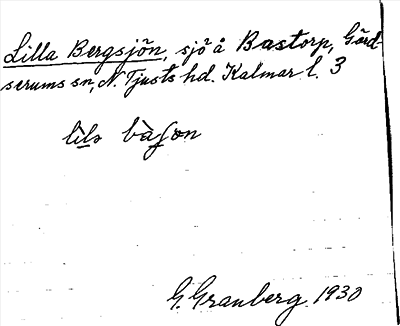 Lilla Bergsjön, sjö å Bastorp, Gärd-
serums sn, N. Tjusts hd. Kalmar l. 3
G. Granberg 1930